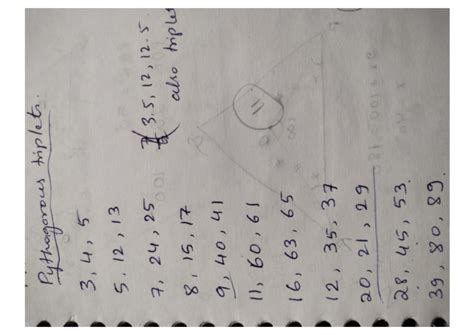 Pythagorous triplets.
3, 4, 5
5, 12, 13
7, 24, 25
8, 15, 17
9, 40, 41
11, 60, 61
16, 63, 65
12, 35, 37
20, 21, 29
28, 45, 53.
39, 80, 89.
3.5, 12, 12.5
also triplet
11